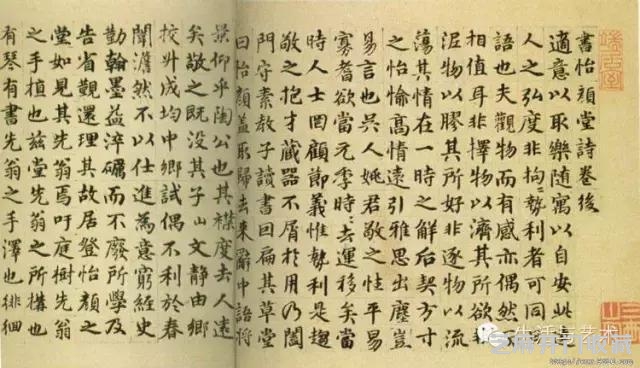 書怡顏堂詩卷後
適意以取樂隨寓以自安此
人之弘度非拘〻勢利者可同
語也夫觀物而有感亦偶然
相值耳非擇物以濟其所欲
泥物以膠其所好非逐物以流
蕩其情在一時之解后契方寸
之怡愉高情遠引雅思出塵豈
易言也吳人姚君敬之性平易
寡嗜欲當元季時〻去運移矣當
時人士罔顧節義惟勢利是趨
敬之抱才蔵器不屑於用乃闔
門守素教子讀書回扁其草堂
曰怡顏蓋取歸去来辭中語将
景仰乎陶公也其襟度去人遠
矣敬之既没其子山文靜由鄉
校升成均中鄉試偶不利於春
闈澹然不以仕進為意窮經史
勤翰墨益淬礪而不廢所學及
告省觀還理其故居登怡顏之
堂如見其先翁焉吁庭樹先翁
之手植也兹堂先翁之所構也
有琴有書先翁之手澤也徘徊
生活与艺术